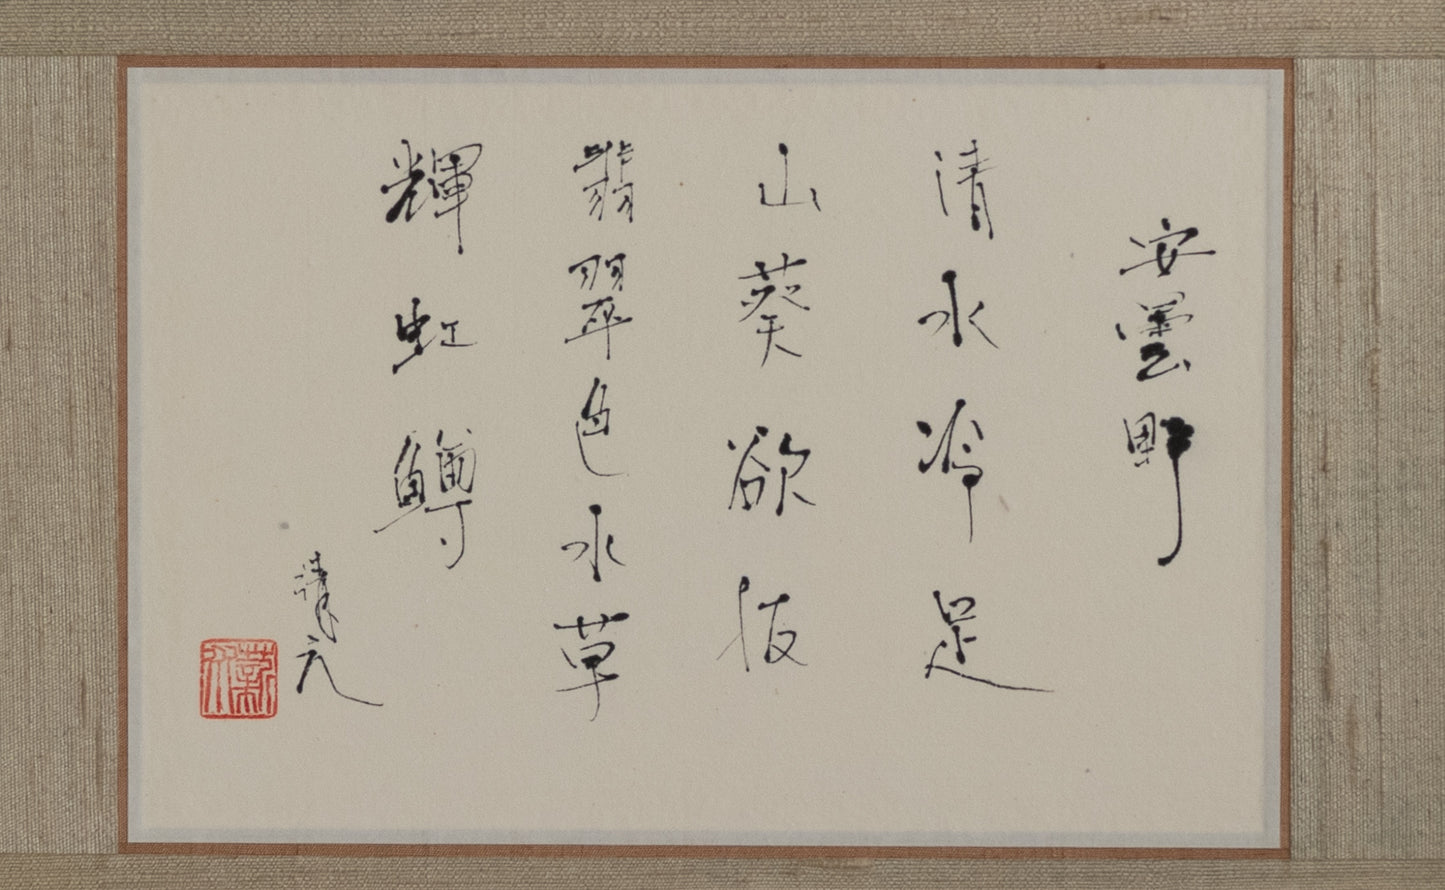 安曇野
清水冷足
山葵欲抜
翡翠色水草
輝虹鱒
清元